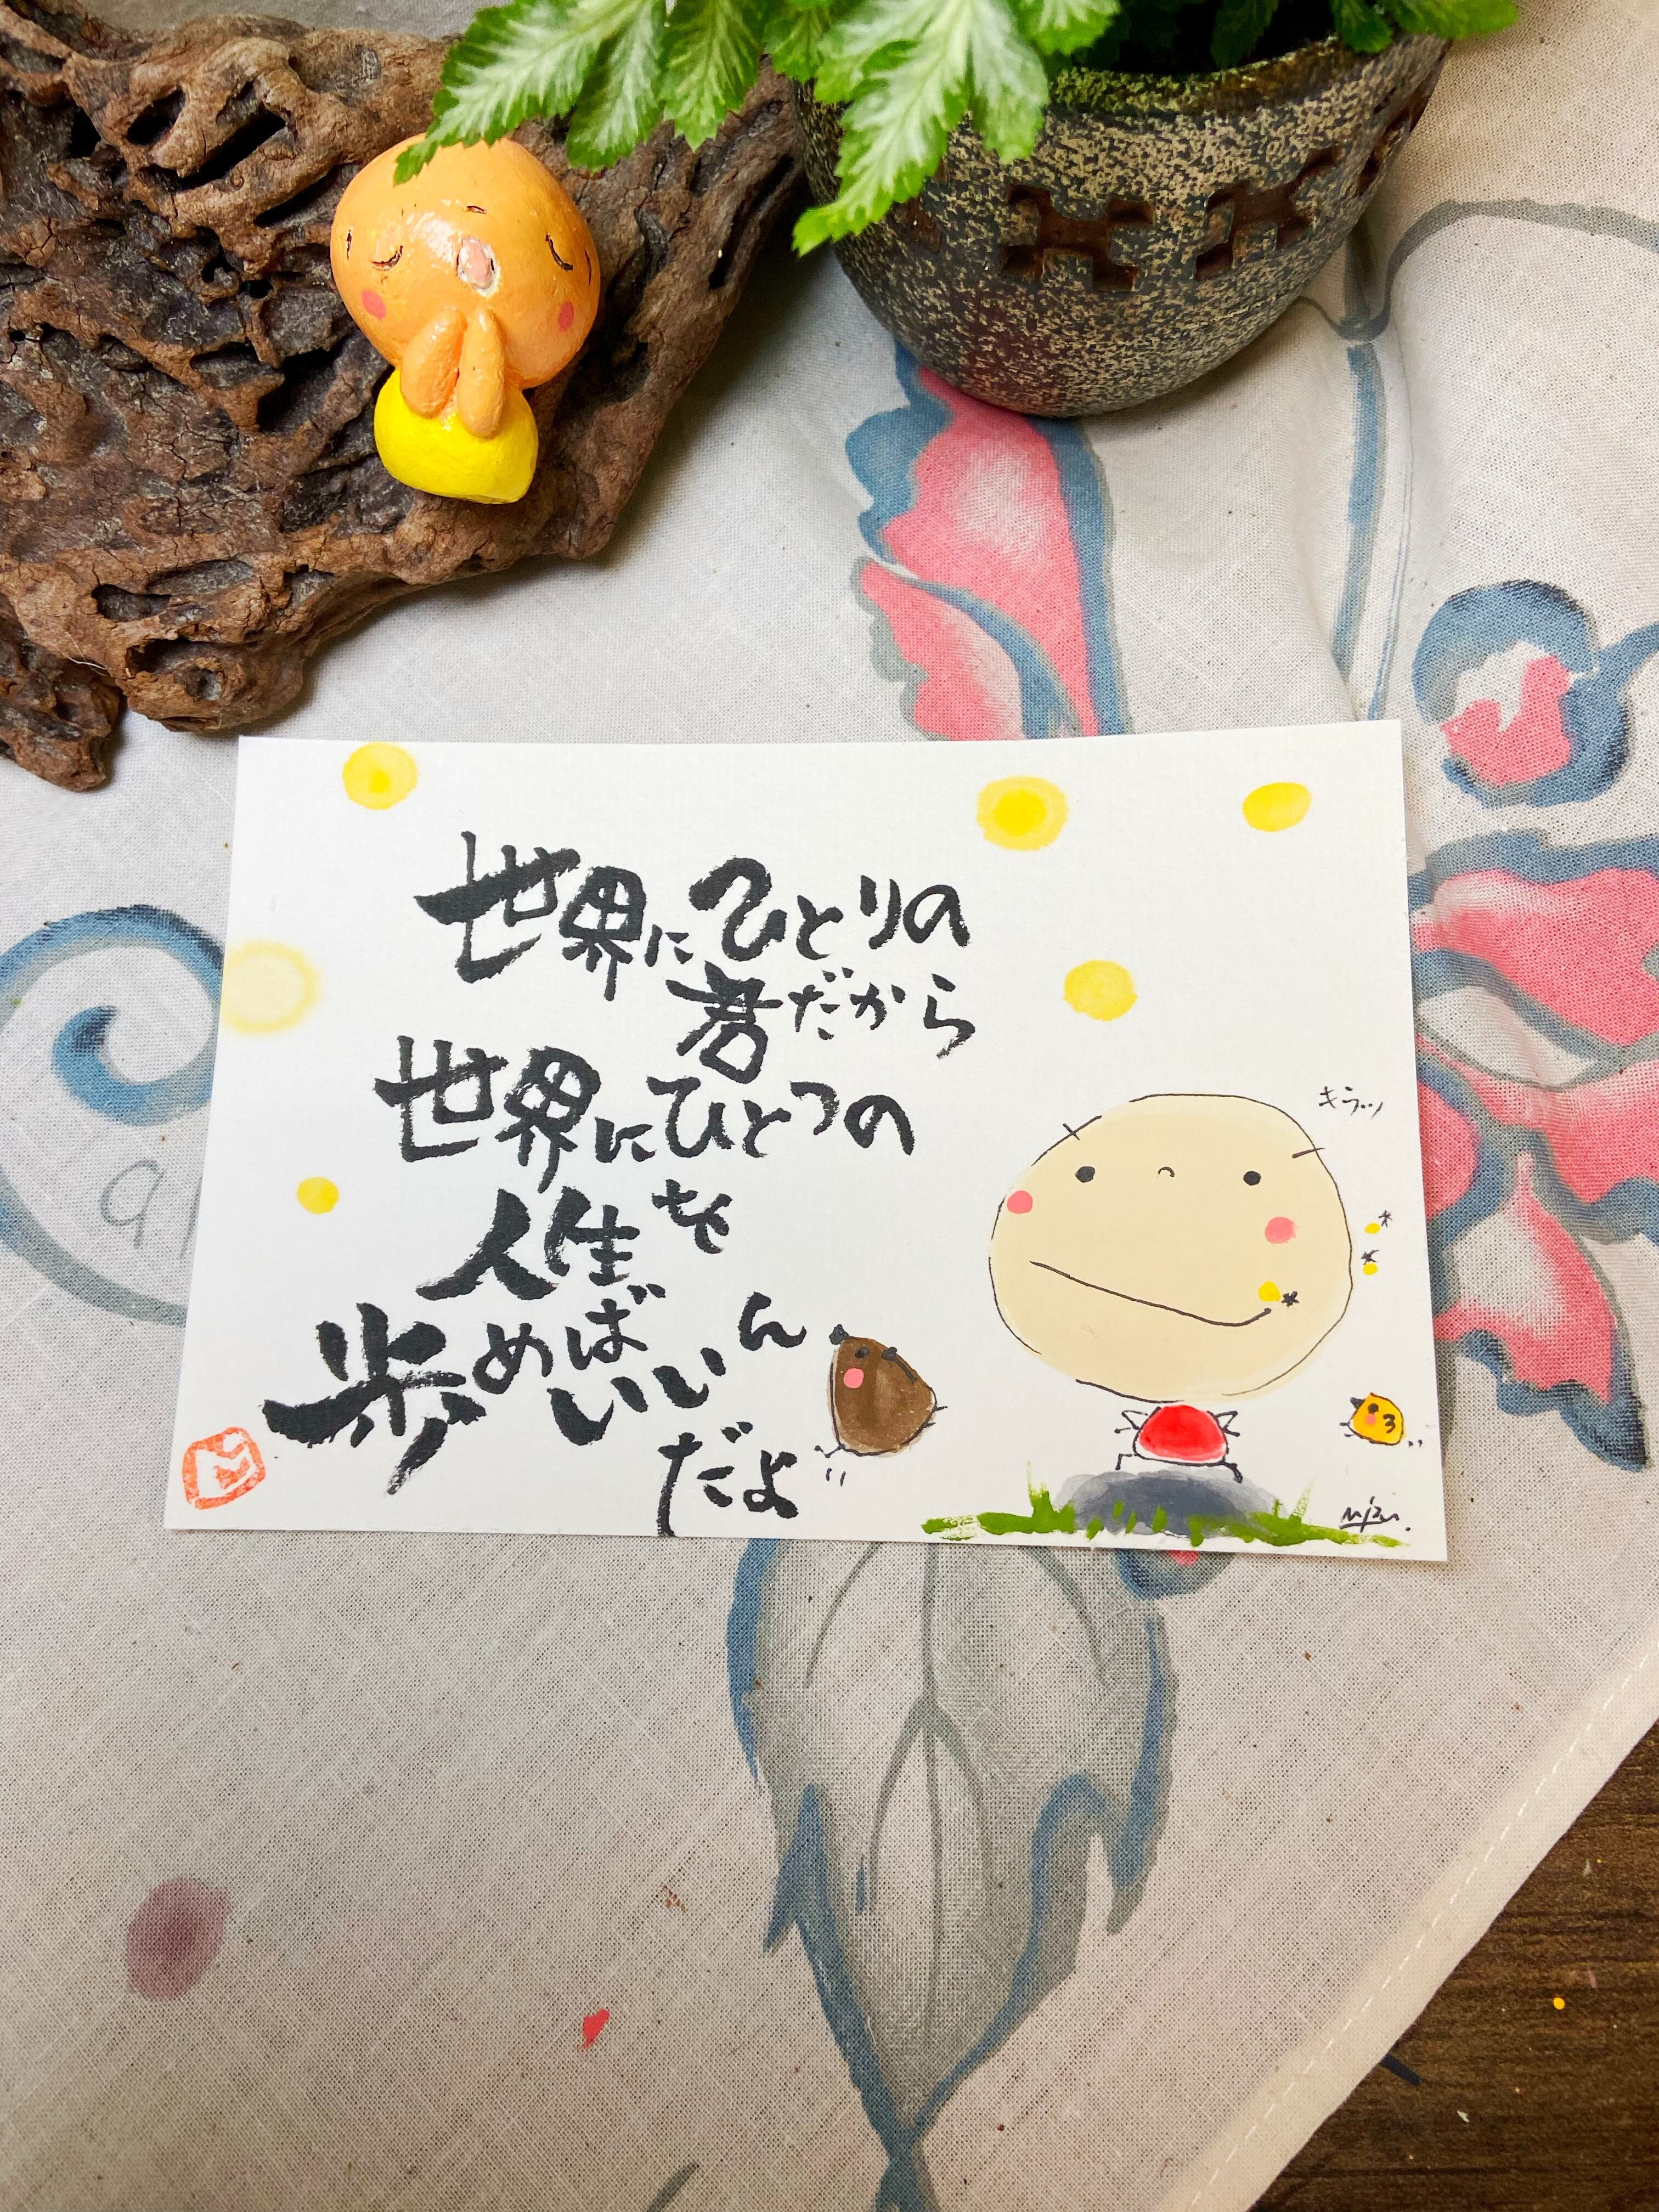 世界にひとりの
君だから
世界にひとつの
人生を
歩めばいいん
だよ
キラッ